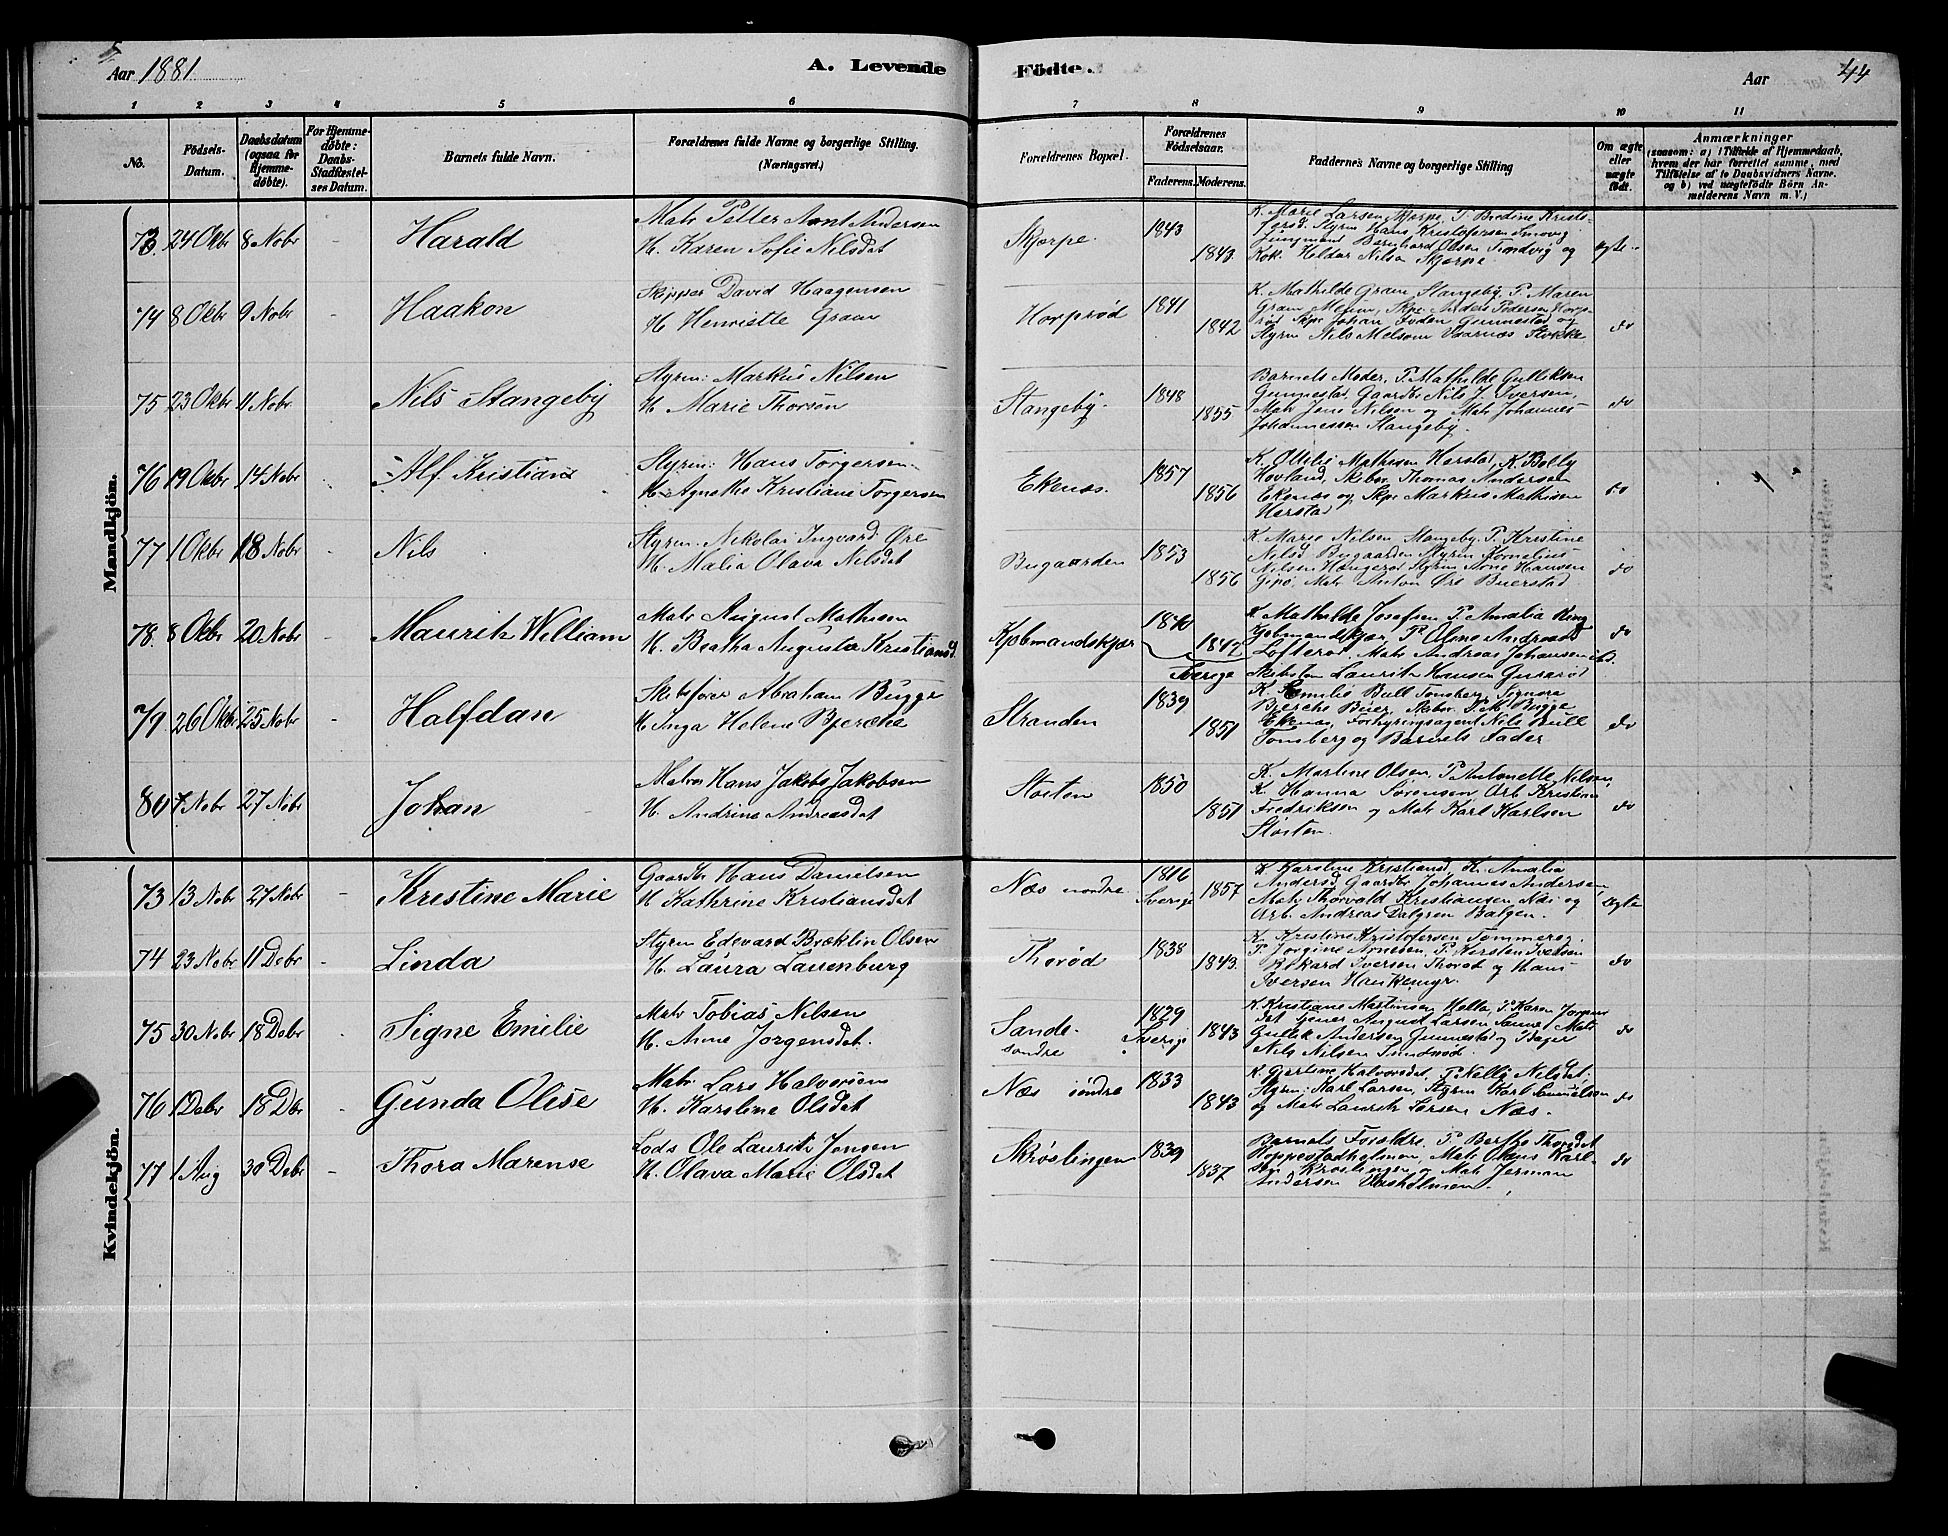 Aar 1881
A. Levende
Födte.
Aar
44
1 2 3 4 5 6 7 8 9 10 11
No.
Födsels-
Datum.
Daabsdatum
(ogsaa for
Hjemme-
döbte).
For Hjemme-
döbte:
Daabs-
Stadfæstel-
ses Datum.
Barnets fulde Navn.
Forældrenes fulde Navne og borgerlige Stilling.
(Næringsvei.)
Forældrenes Bopæl.
Forældrenes
Födselsaar.
Faderens. Moderens.
Faddernes Navne og borgerlige Stilling
Om ægte
eller
uægte
födt.
Anmærkninger
(saasom: a) i Tilfælde af Hjemmedaab,
hvem der har forrettet samme, med
Tilföielse af to Daabsvidners Navne.
og b) ved uægtefödte Börn An-
melderens Navn m. V.)
Mandkjön.
73. 24 Okbr 8 Nobr - Harald
Matr Petter Amt Andersen
H. Karen Sofie Nilsdat
Skjærpe. 1843 1843.
K. Marie Larsen Skjærpe, P. Bredine Krist-
Styrm Hans Kristofersen
Jungmand Bernhard Olsen og
Kok Heldor Nilsen Skjærpe
ægte
74 8 Okbr 9 Nobr - Haakon
Skipper David Haagensen
H Henriette Gram
Horperød 1841 1842
K. Mathilde Gram, Stangeby, P. Maren
Gram Melsom, Skpr Anders Pedersen Horpe-
rød Skpr Johan Gunnestad og
Styrm Nils Melsom Vaarnæs Stokke
do
75 23 Okbr 11 Nobr - Nils Stangeby
Styrm: Markus Nilsen
H. Marie Thorson
Stangeby. 1848 1855
Barnets Moder, P. Mathilde Gulliksen
Gunnestad Gaardbr Nils J. Iversen,
Matr Jens Nilsen og Matr Johannes
Johannessen Stangeby.
do
76 19 Okbr 14 Nobr - Alf Kristian
Styrm: Hans Torgersen
H. Agnethe Kristiane Torgersen
Ekenæs. 1857 1856
K. Otilie Mathisen Harstad, K. Bolly
Hovland, Skibsr. Thomas Andersen
Ekenæs og Skpr Markus Mathisen
Harstad
do
77 1 Okbr 18 Nobr - Nils
Styrm. Nikolai Ingvard Øre
H. Malia Olava Nilsdat
Bugaarden 1853 1856
K. Marie Nilsen, Stangeby, P. Kristine
Nilsd Bugaarden Styrm Kornelius
Nilsen Haugerød Styrm Arne Hansen
Gipø, Matr Anton Øre Buerstad
do
78. 8 Okbr 20 Nobr - Mauritz William
Matr August Mathisen
H. Beatha Augusta Kristiansd.
Kjøbmandskjær 1840 1847
Sverige
K. Mathilde Josefsen P. Amalia Ring
Kjøbmandskjær, P. Oline Andreasd
Lofterød. Matr Andreas Johansen ibd.
Skibstøm Lauritz Hansen
do
79 26 Okbr 25 Nobr - Halfdan
Skibsfører Abraham Bugge
H Inga Helene Bjercke
Stranden 1839 1851
K. Emilie Bull Tønsberg, Signora
Bjercke Buer, Skibsr. P. M. Bugge
Ekenæs, Forhyringsagent Nils Bull
Tønsberg og Barnets Fader
do
80 7 Nobr 27 Nobr - Johan
Matr Hans Jakob Jakobsen
H. Andrine Andreasdat
Støiten 1850 1851
K. Martine Olsen, P. Antonette Nilsen
K. Hanna Sørensen Arb Kristian
Fredriksen og Matr Karl Karlsen
Støiten.
do
Kvindekjön.
73 13 Nobr 27 Nobr - Kristine Marie
Gaardbr Hans Danielsen
H Kathrine Kristiansdat
Næs nordre. 1846 Sverige 1857
K Karoline Kristiansd, K. Amalia
Andersd Gaardbr Johannes Andersen
Matr Thorvald Kristiansen Næs og
Arb. Andreas Dalgren Bølgen.
ægte
74 23 Nobr 11 Debr - Linda
Styrm Edevard Bræklin Olsen
H. Laura Lauenburg
Thorød 1838 1843.
K. Kristine Kristofersen Tømmerø,
P. Jorgine Arnesen, P. Kirsten Iversen
Rikard Iversen Thorød og Hans
Iversen
do
75 30 Nobr 18 Debr - Signe Emilie
Matr Tobias Nilsen
H. Anne Jorgensdat.
Sande 1829 1843
søndre Sverige
K. Kristiane Martinsen Hella, P. Karen Jorgens
dat August Larsen Sande, Matr
Gullik Andersen Gunnestad og Bager
Nils Nilsen Sundrød.
do
76 1 Debr 18 Dbr - Gunda Olise
Matr Lars Halvorsen
H. Karoline Olsdat
Næs søndre 1833 1843
K. Gurline Halvorsdat, P. Nelly Nilsdat.
Styrm: Karl Larsen, Styrm Karl Samuelson
og Matr Lauritz Larsen Næs.
do
77 1 Aug 30 Debr - Thora Marense
Lods Ole Laurits Jensen
H. Olava Marie Olsdat
Skrøslingen 1839 1837
Barnets Forældre, P. Berthe Thorsdat
Matr Olaus Karl-
sen Krøslingen og Matr Herman
Andersen Vasholmen.
do